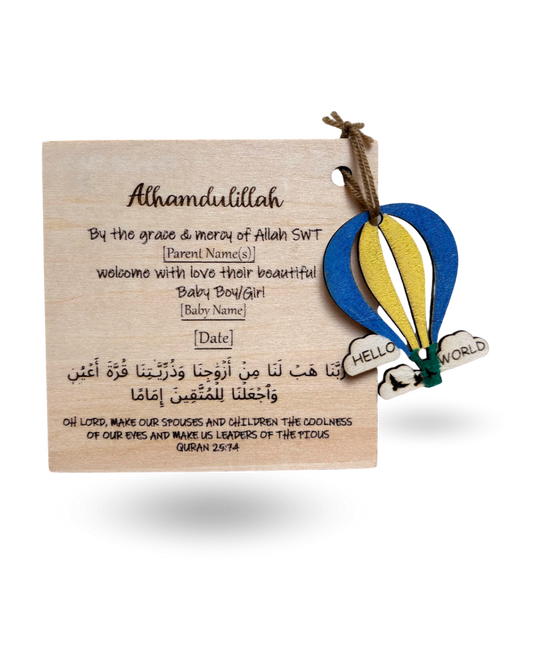 Alhamdulillah
By the grace & mercy of Allah SWT
[Parent Name(s)]
welcome with love their beautiful
Baby Boy/Girl
[Baby Name]
[Date]
رَبَّنَا هَبْ لَنَا مِنْ أَزْوَٰجِنَا وَذُرِّيَّـٰتِنَا قُرَّةَ أَعْيُنٍ
وَٱجْعَلْنَا لِلْمُتَّقِينَ إِمَامًا
OH LORD, MAKE OUR SPOUSES AND CHILDREN THE COOLNESS
OF OUR EYES AND MAKE US LEADERS OF THE PIOUS
QURAN 25:74
HELLO WORLD